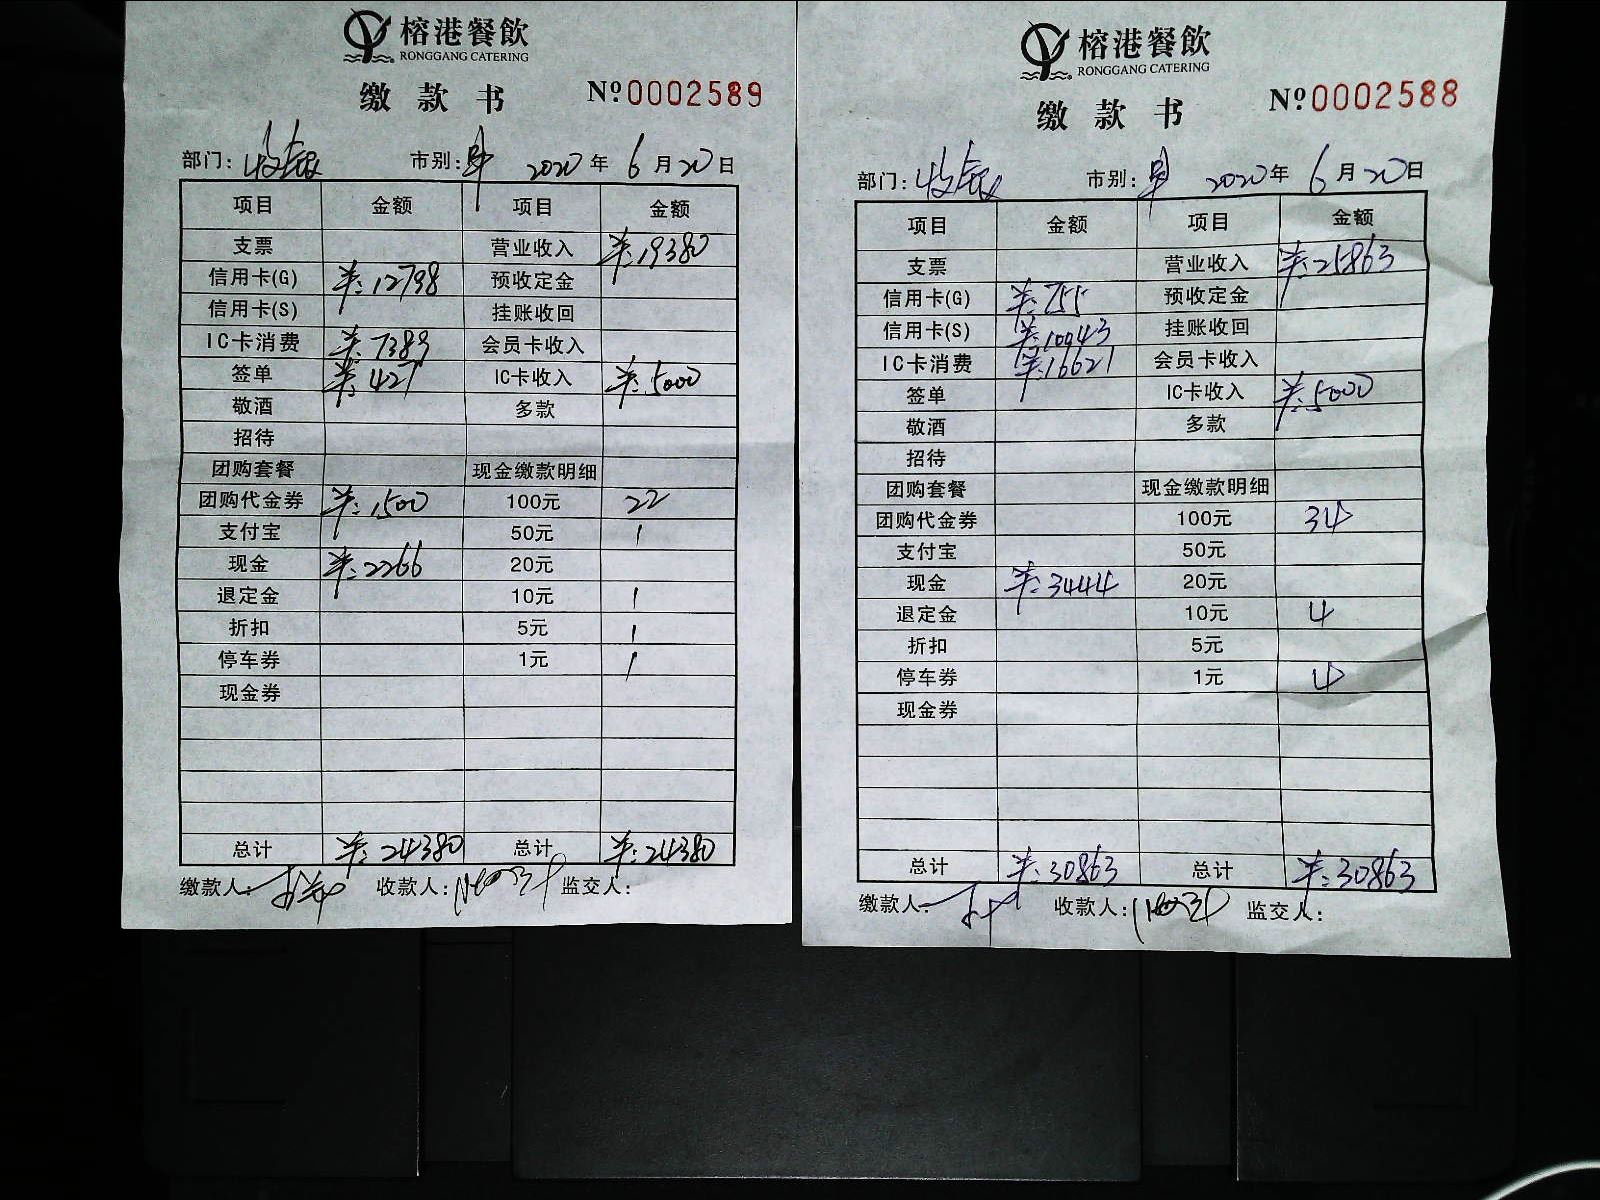 榕港餐飲
RONGGANG CATERING
缴款书 Nº0002589
部门: 收银 市别: 2020年6月20日
项目 金额 项目 金额
支票 营业收入 ¥:19380
信用卡(G) ¥:12798 预收定金
信用卡(S) 挂账收回
IC卡消费 ¥:7389 会员卡收入
签单 ¥:427 IC卡收入 ¥:5000
敬酒 多款
招待
团购套餐 现金缴款明细
团购代金券 ¥:1500 100元 22
支付宝 50元 1
现金 ¥:2266 20元
退定金 10元 1
折扣 5元 1
停车券 1元 1
现金券
总计 ¥:24380 总计 ¥:24380
缴款人: 收款人: 监交人:
榕港餐飲
RONGGANG CATERING
缴款书 Nº0002588
部门: 收银 市别: 2020年6月20日
项目 金额 项目 金额
支票 营业收入 ¥:25863
信用卡(G) ¥:755 预收定金
信用卡(S) ¥:10043 挂账收回
IC卡消费 ¥:16621 会员卡收入
签单 IC卡收入 ¥:5000
敬酒 多款
招待
团购套餐 现金缴款明细
团购代金券 100元 34
支付宝 50元
现金 ¥:3444 20元
退定金 10元 4
折扣 5元
停车券 1元 4
现金券
总计 ¥:30863 总计 ¥:30863
缴款人: 收款人: 监交人: